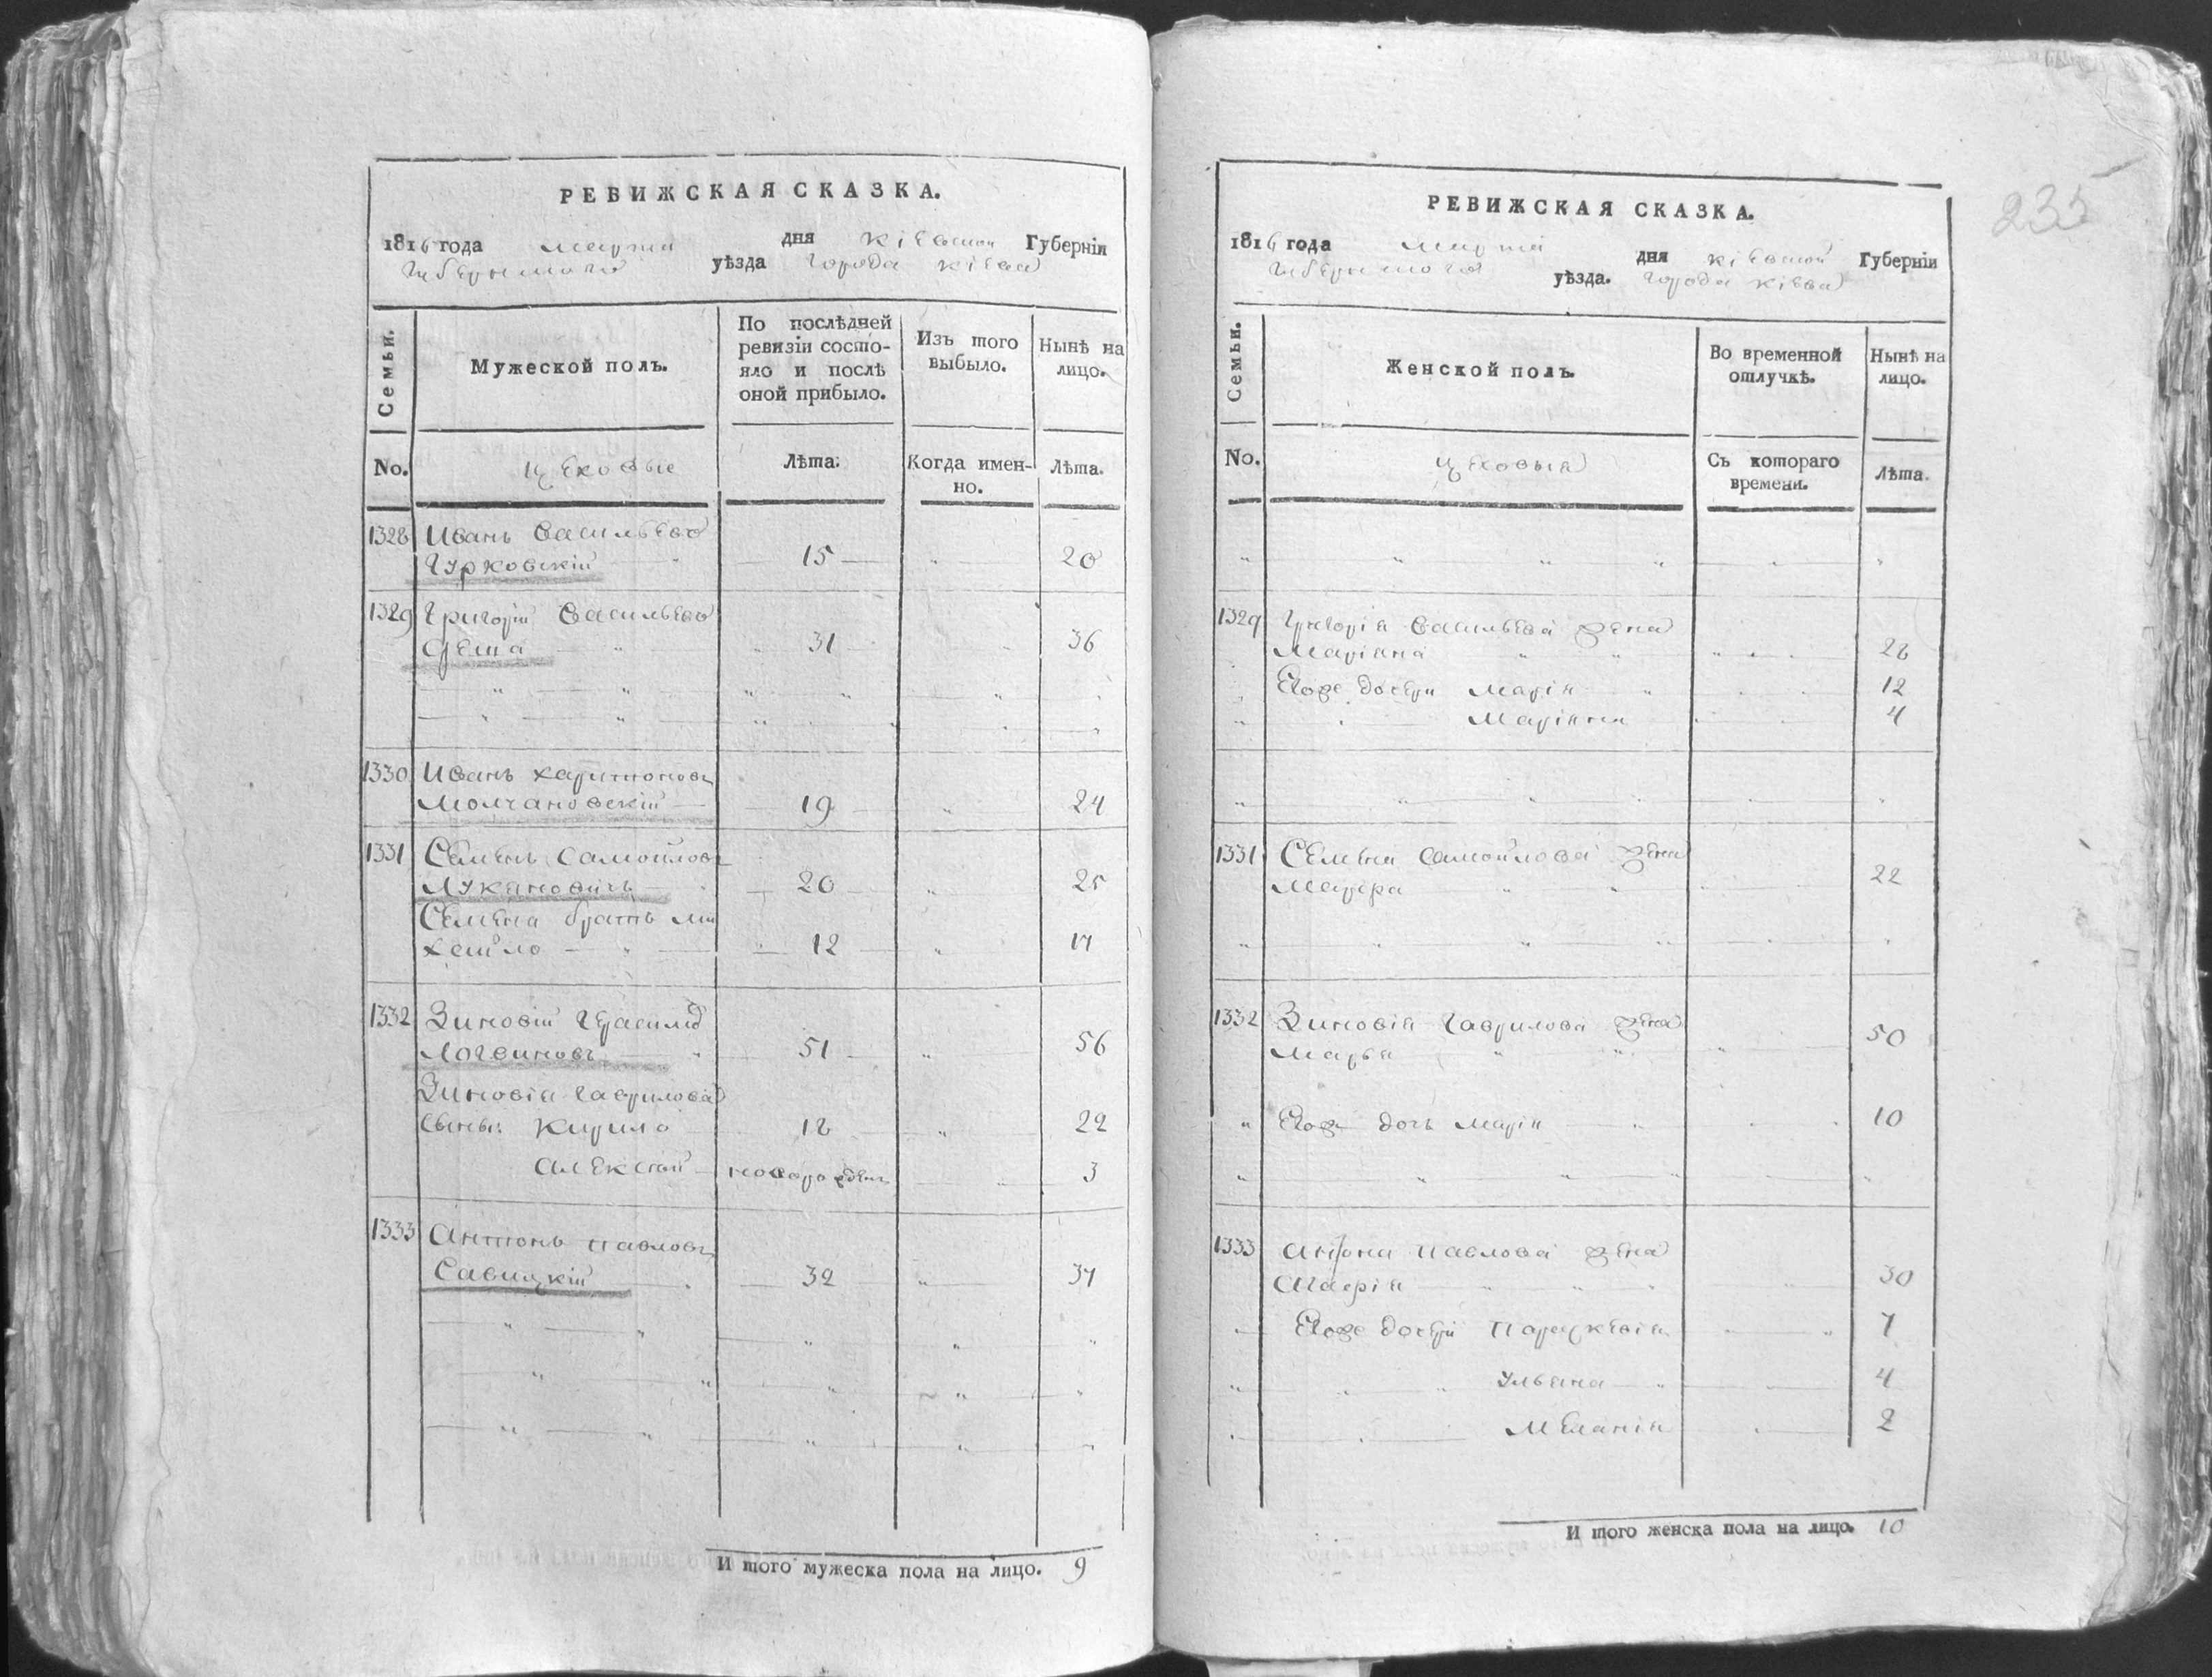 РЕВИЖСКАЯ СКАЗКА.
1816 года марта дня Кіевской Губерніи
Губернского уѣзда города Кіева
Семьи.
Мужеской полъ.
По послѣдней ревизіи состо-
яло и послѣ оной прибыло.
Изъ того выбыло.
Нынѣ на лицо.
No. Цеховые Лѣта. Когда имен-
но. Лѣта.
1328 Иванъ Васильевъ
Гурковскій 15 20
1329 Григорій Васильевъ
Деша 31 36
1330 Иванъ Харитоновъ
Молчановскій 19 24
1331 Семенъ Самойловъ
Лукяновичъ 20 25
Семена братъ Ми
хайло 12 17
1332 Зиновій
Логвиновъ 51 56
Зиновія Гаврилова
сыны: Кирило 18 22
Алексѣй новорожденъ 3
1333 Антонъ Павловъ
Савицкій 32 37
И того мужеска пола на лицо. 9
235
РЕВИЖСКАЯ СКАЗКА.
1816 года марта дня Кіевской Губерніи
Губернского уѣзда. города Кіева
Семьи.
Женской полъ.
Во временной отлучкѣ.
Нынѣ на лицо.
No. Цеховыя Съ котораго
времени. Лѣта.
1329 Григорія Васильева жена
Маріяна 28
Егоже дочери Марія 12
Маріяна 4
1331 Семена Самойлова жена
Мавра 22
1332 Зиновія Гаврилова жена
Марья 50
Егоже дочь Марія 10
1333 Антона Павлова жена
Магдрія 30
Егоже дочери Параскевія 7
Ульяна 4
Меланія 2
И того женска пола на лицо. 10